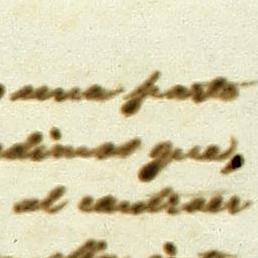 una parte
dimos que,
al contraer